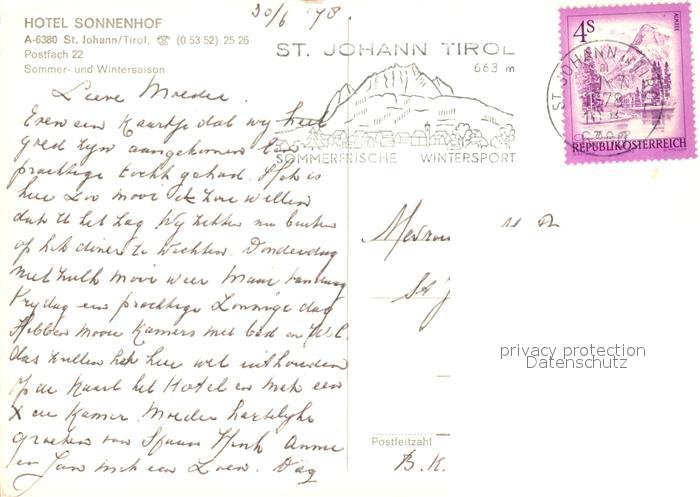 HOTEL SONNENHOF
A-6380 St. Johann/Tirol, ☎ (0 53 52) 25 26
Postfach 22
Sommer- und Wintersaison
30/6 '78.
ST. JOHANN TIROL
663 m
SOMMERFRISCHE WINTERSPORT
4S
REPUBLIK ÖSTERREICH
ST. JOHANN
Lieve Moeder.
Even een kaartje dat wij heel
goed zijn aangekomen Een
prachtige tocht gehad. Het is
hier zoo mooi
dat U het zag Wij zitten nu buiten
op het diner te wachten. Donderdag
niet zulk mooi weer Maar vandaag
Vrijdag een prachtige zonnige dag
Hebben mooie Kamers met bad en W.C.
dus zullen het hier wel uithouden
op de Kaart het Hotel en met een
X onze Kamer. Moeder hartelijke
groeten van Henk Annie
en Jan met een Zoen. Dag
Mevrou
St J
privacy protection
Datenschutz
Postleitzahl
B.K.